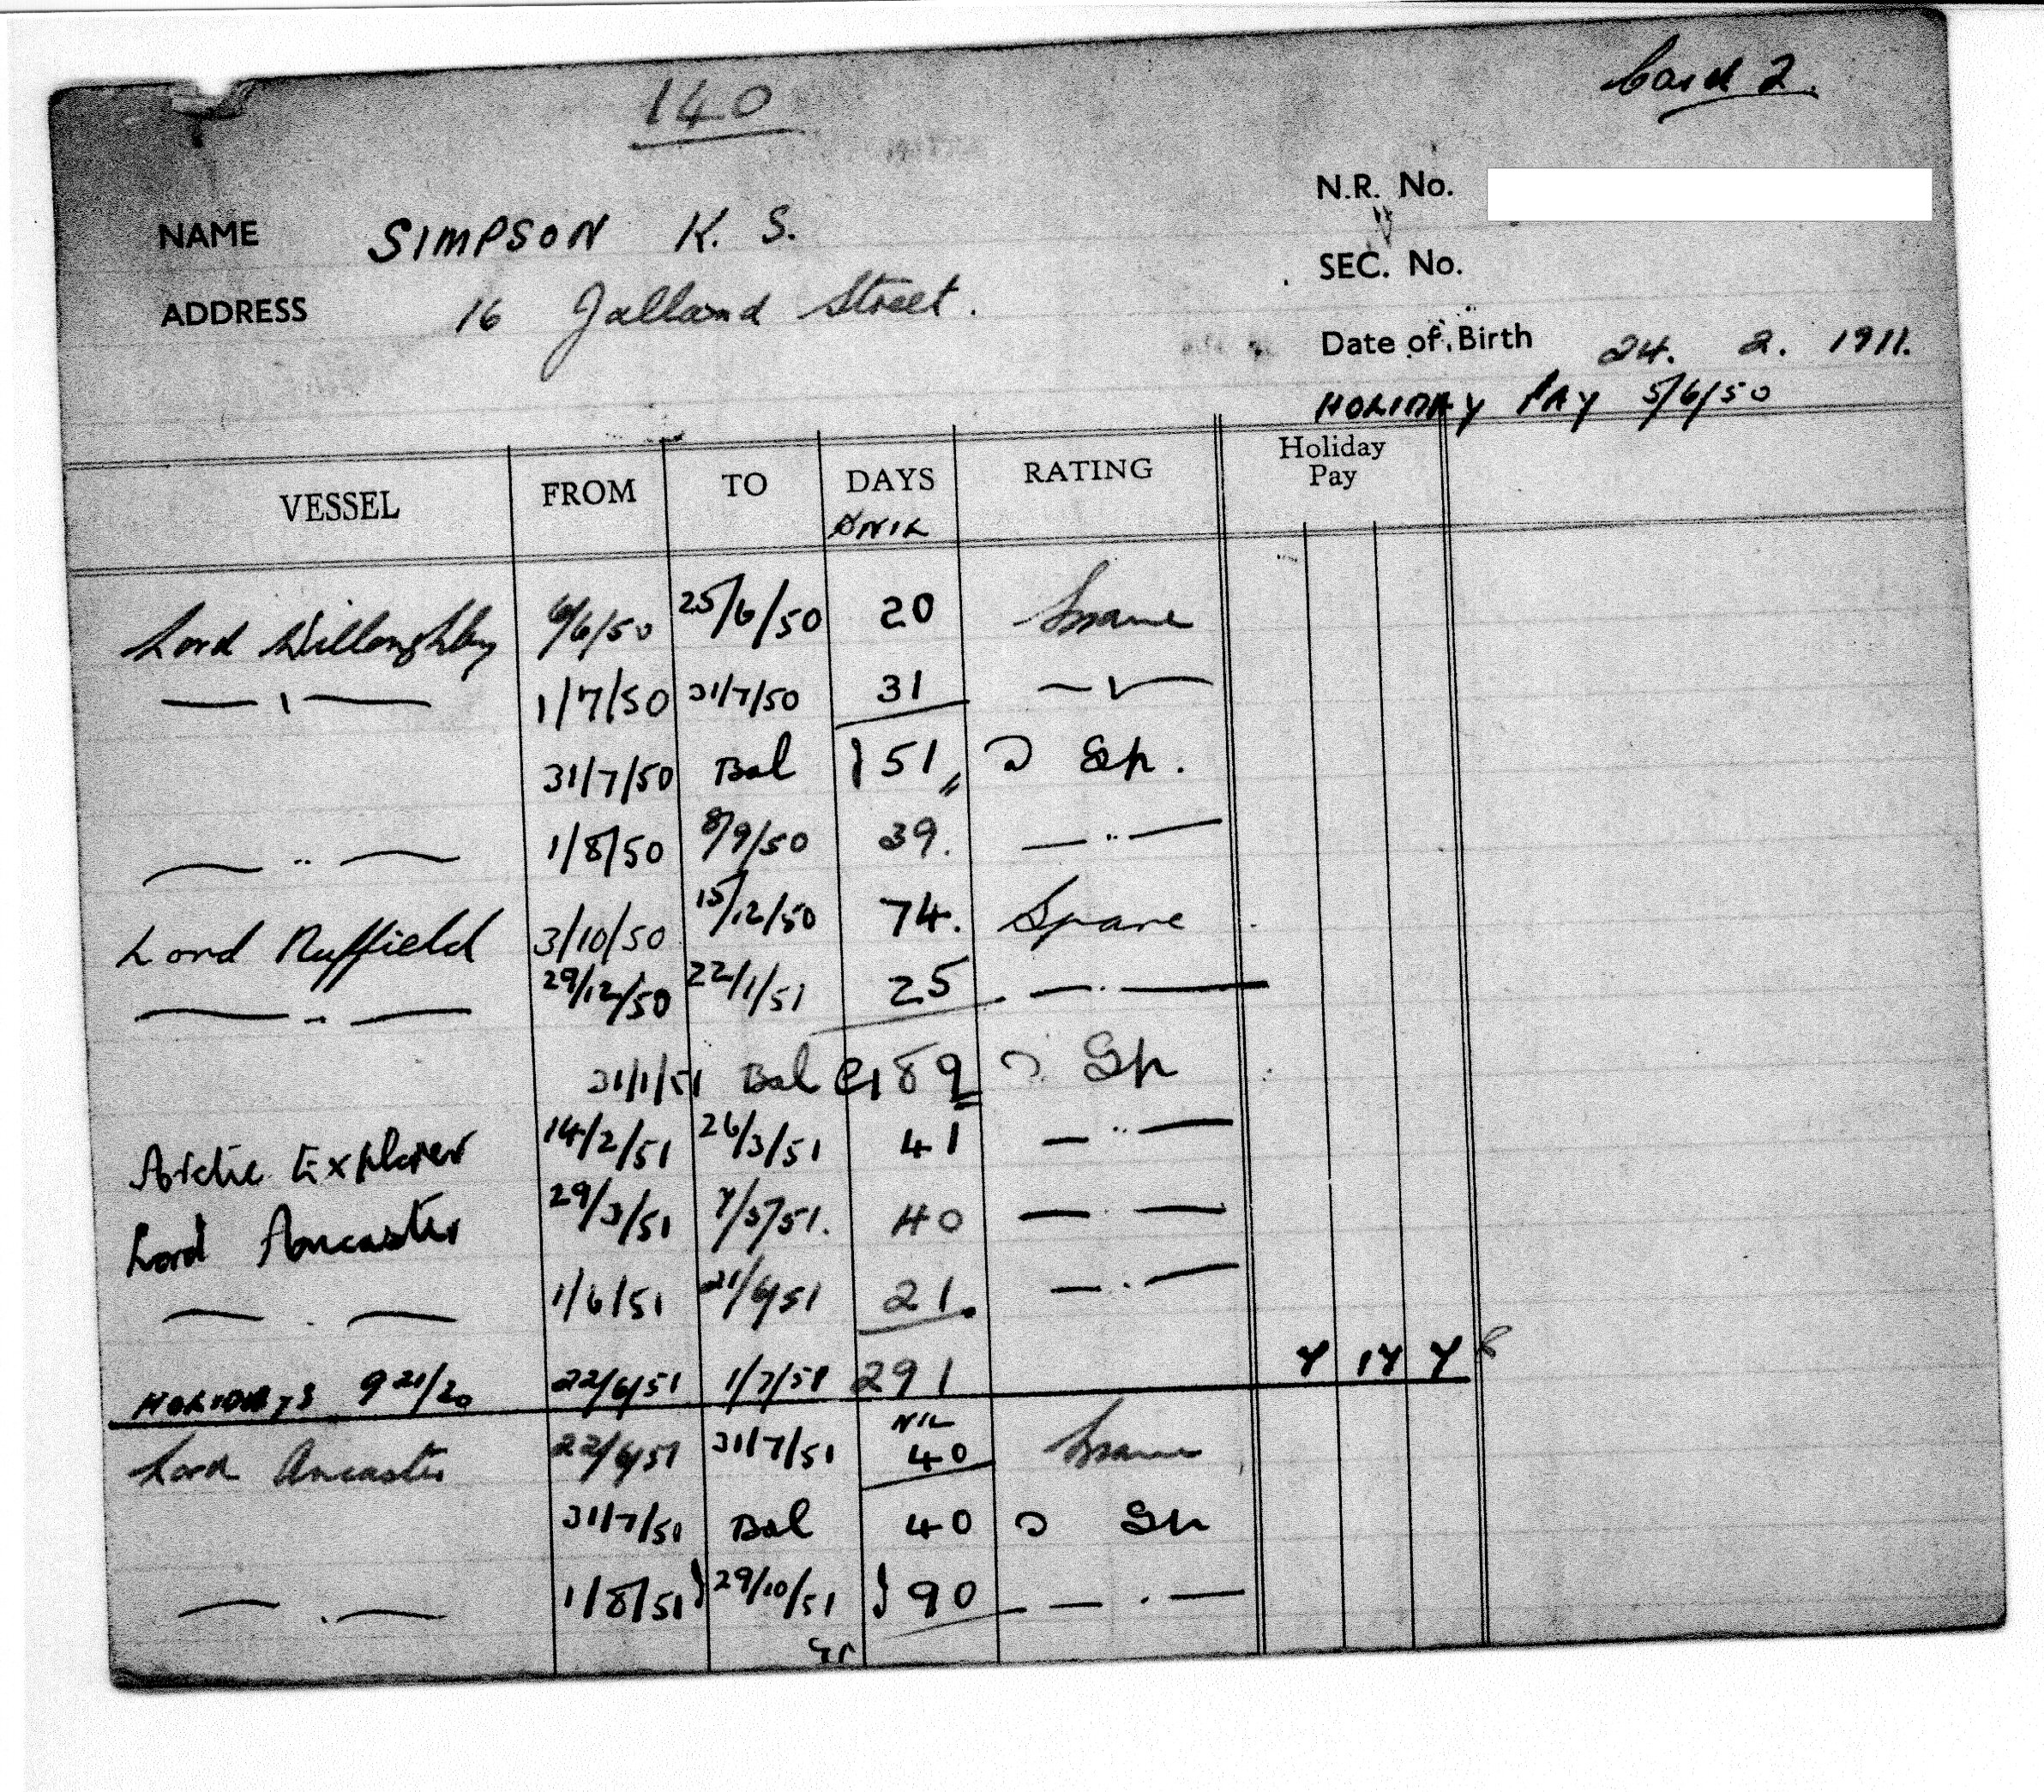 140
Card 2.
N.R. No.
NAME SIMPSON K. S.
SEC. No.
ADDRESS 16 Jalland Street.
Date of Birth 24. 2. 1911.
HOLIDAY PAY 5/6/50
VESSEL FROM TO DAYS RATING Holiday Pay
NIL
Lord Willoughby 6/6/50 25/6/50 20 Spare
— " — 1/7/50 31/7/50 31 — " —
31/7/50 Bal 51 Sp.
— " — 1/8/50 8/9/50 39. — " —
Lord Nuffield 3/10/50 15/12/50 74. Spare
— " — 29/12/50 22/1/51 25 — " —
31/1/51 Bal 189 Sp
Arctic Explorer 14/2/51 26/3/51 41 — " —
Lord Ancaster 29/3/51 7/5/51. 40 — " —
— " — 1/6/51 21/6/51 21. — " —
HOLIDAYS 9 21/20 22/6/51 1/7/51 291 7 17 7
NIL
Lord Ancaster 22/6/51 31/7/51 40 Spare
31/7/51 Bal 40 Sp
— " — 1/8/51 29/10/51 90 — " —